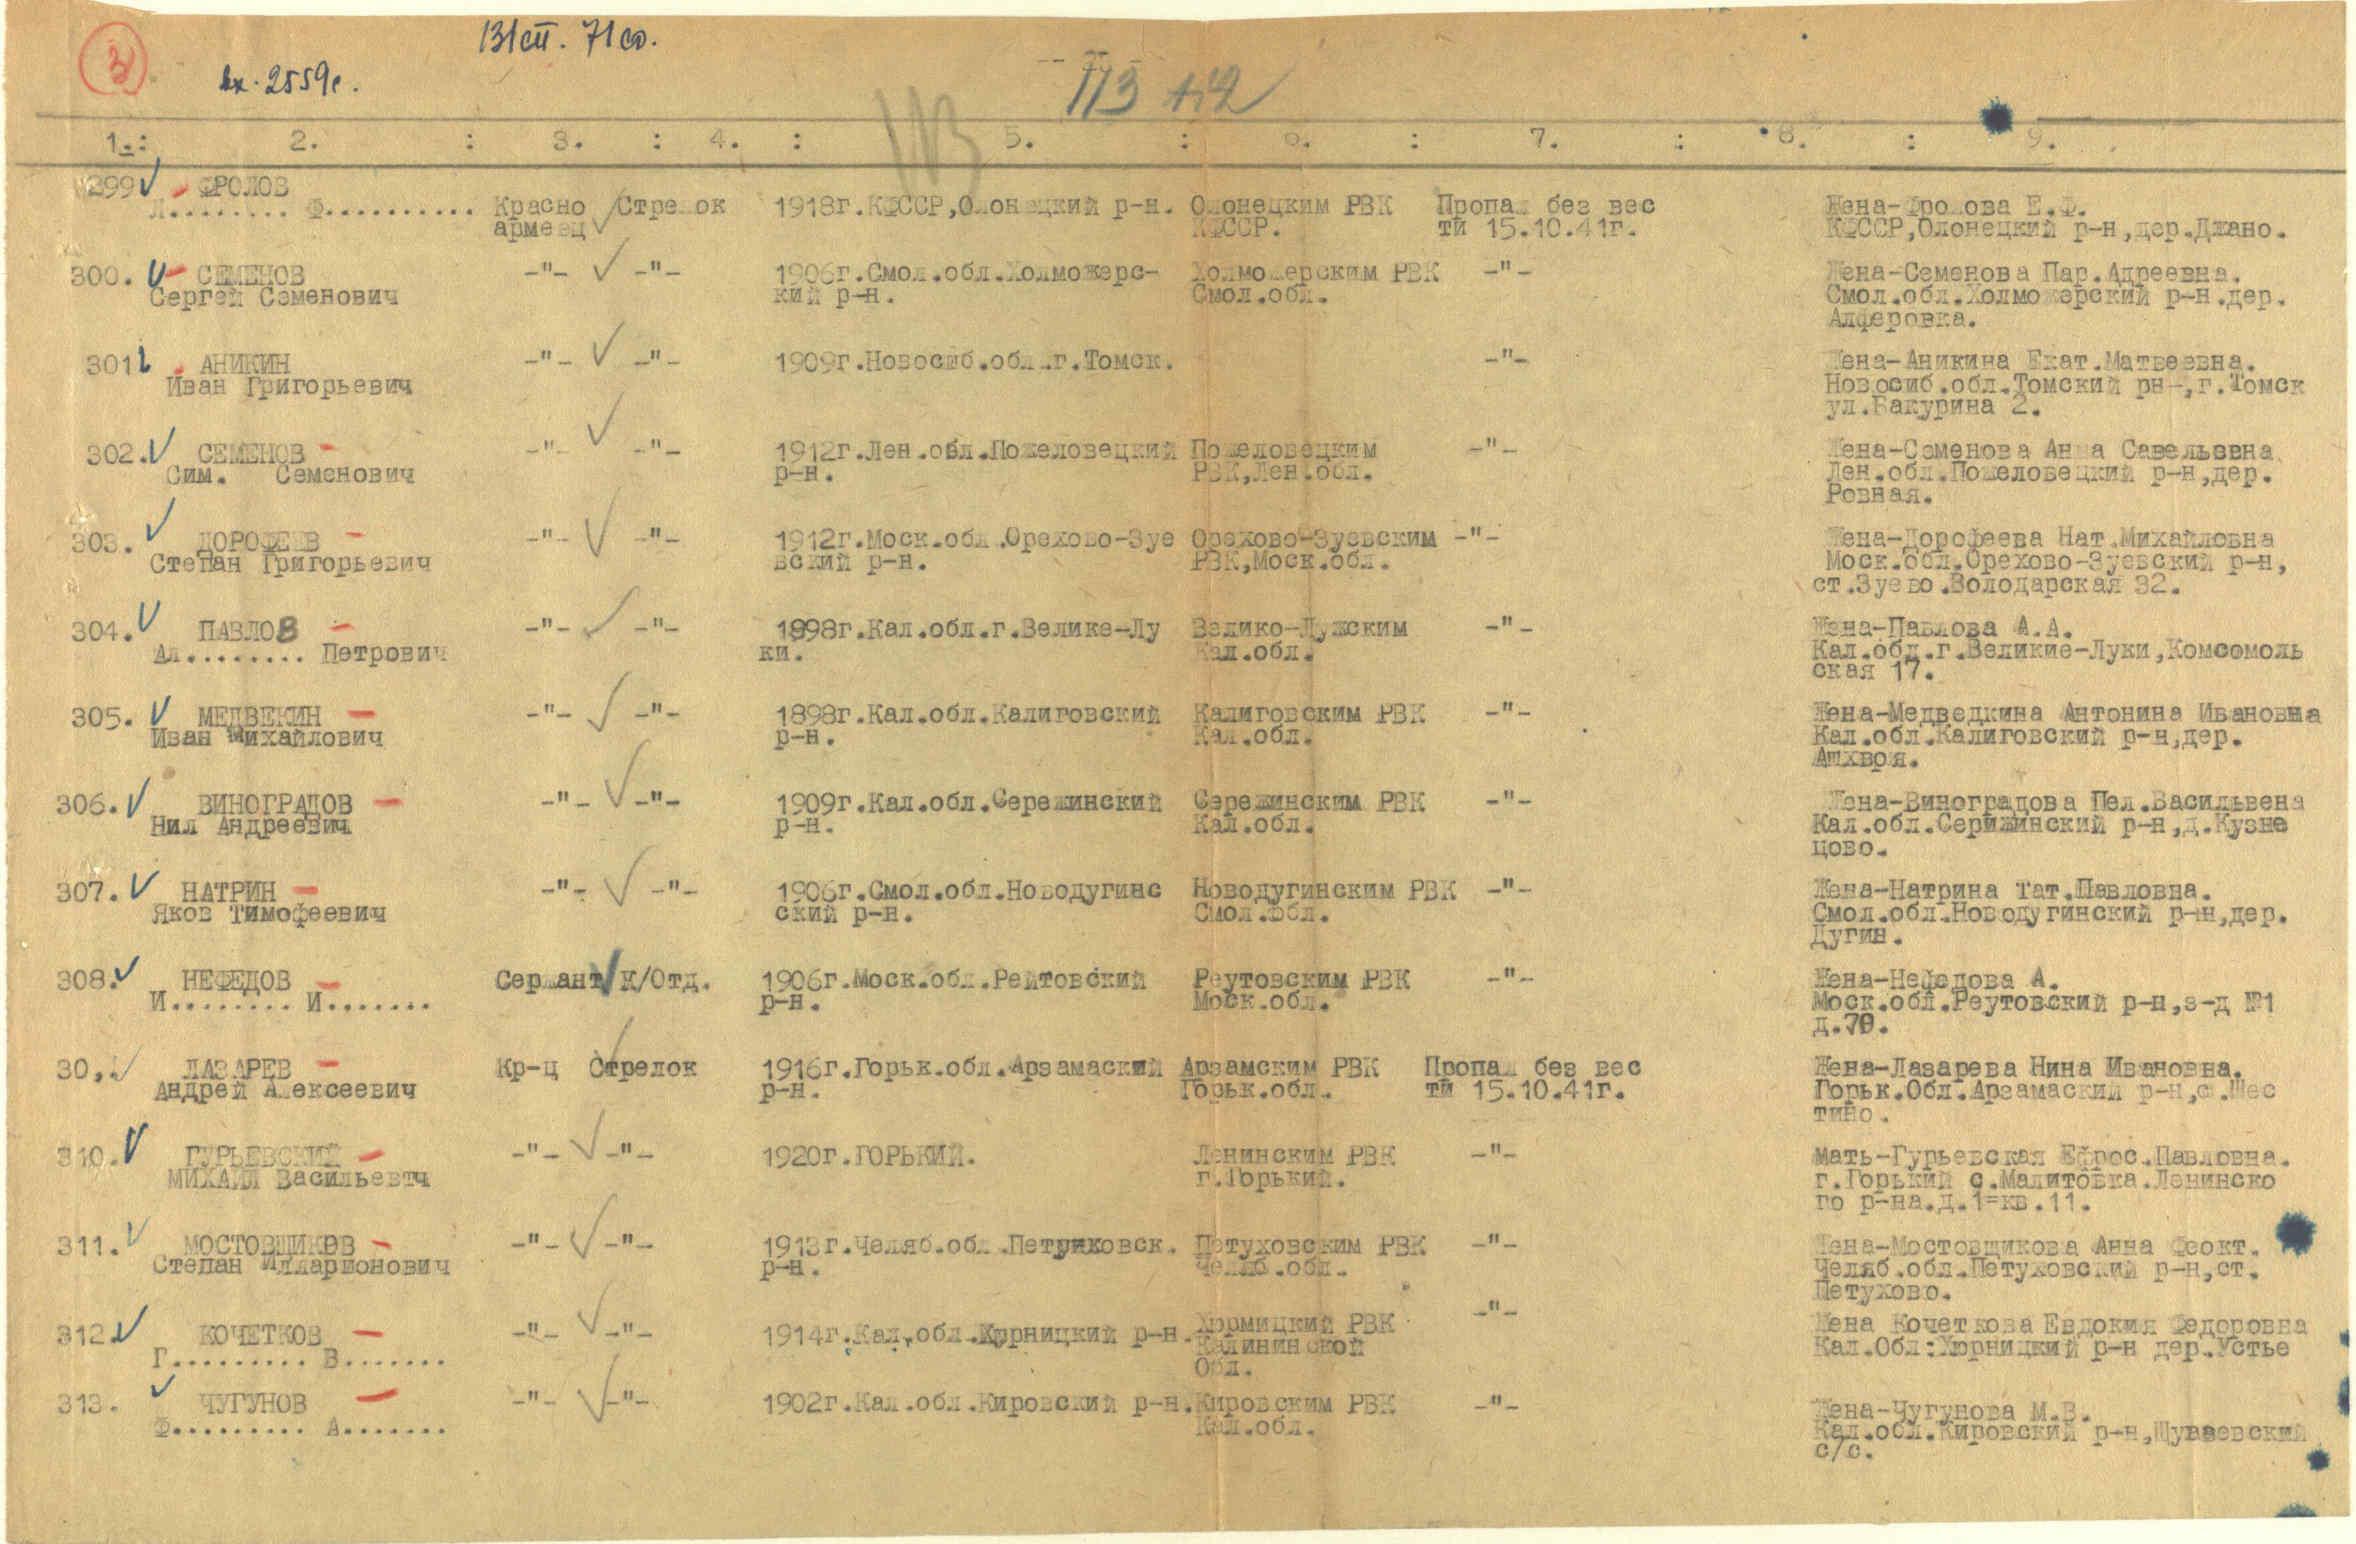 3
131 сп. 71 сд.
вх. 2559с.
113
1.: 2. : 3. : 4. : 5. : 6. : 7. : 8. : 9.
299 ФРОЛОВ
Л......... Ф.......... Красно Стрелок 1918г.КФССР,Олонецкий р-н. Олонецким РВК Пропал без вес Жена-Фролова Е.Ф.
армеец КФССР. ти 15.10.41г. КФССР,Олонецкий р-н,дер.Джано.
300. СЕМЕНОВ -"- -"- 1906г.Смол.обл.Холможерс- Холможерским РВК -"- Жена-Семенова Пар.Адреевна.
Сергей Семенович кий р-н. Смол.обл. Смол.обл.Холможерский р-н.дер.
Алферовка.
301 АНИКИН -"- -"- 1909г.Новосиб.обл.г.Томск. -"- Жена-Аникина Екат.Матвеевна.
Иван Григорьевич Новосиб.обл.Томский рн-,г.Томск
ул.Бакурина 2.
302. СЕМЕНОВ -"- -"- 1912г.Лен.обл.Пожеловецкий Пожеловецким -"- Жена-Семенова Анна Савельевна
Сим. Семенович р-н. РВК,Лен.обл. Лен.обл.Пожеловецкий р-н,дер.
Ровная.
303. ДОРОФЕЕВ -"- -"- 1912г.Моск.обл.Орехово-Зуе Орехово-Зуевским -"- Жена-Дорофеева Нат.Михайловна
Степан Григорьевич вский р-н. РВК,Моск.обл. Моск.обл.Орехово-Зуевский р-н,
ст.Зуево.Володарская 32.
304. ПАВЛОВ -"- -"- 1898г.Кал.обл.г.Велике-Лу Велико-Лужским -"- Жена-Павлова А.А.
Ал........ Петрович ки. Кал.обл. Кал.обл.г.Великие-Луки,Комсомоль
ская 17.
305. МЕДВЕКИН -"- -"- 1898г.Кал.обл.Калиговский Калиговским РВК -"- Жена-Медведкина Антонина Ивановна
Иван Михайлович р-н. Кал.обл. Кал.обл.Калиговский р-н,дер.
Ашхвоя.
306. ВИНОГРАДОВ -"- -"- 1909г.Кал.обл.Сережинский Сережинским РВК -"- Жена-Виноградова Пел.Васильвена
Нил Андреевич р-н. Кал.обл. Кал.обл.Серижинский р-н,д.Кузне
цово.
307. НАТРИН -"- -"- 1906г.Смол.обл.Новодугинс Новодугинским РВК -"- Жена-Натрина Тат.Павловна.
Яков Тимофеевич ский р-н. Смол.обл. Смол.обл.Новодугинский р-н,дер.
Дугин.
308. НЕФЕДОВ Сержант К/Отд. 1906г.Моск.обл.Рейтовский Реутовским РВК -"- Жена-Нефедова А.
И........ И....... р-н. Моск.обл. Моск.обл.Реутовский р-н,з-д №1
д.70.
30,. ЛАЗАРЕВ Кр-ц Стрелок 1916г.Горьк.обл.Арзамаский Арзамским РВК Пропал без вес Жена-Лазарева Нина Ивановна.
Андрей Алексеевич р-н. Горьк.обл. ти 15.10.41г. Горьк.Обл.Арзамаский р-н,с.Шес
тино.
310. ГУРЬЕВСКИЙ -"- -"- 1920г.ГОРЬКИЙ. Ленинским РВК -"- Мать-Гурьевская Ефрос.Павловна.
МИХАИЛ Васильевтч г.Горький. г.Горький с.Малитовка.Ленинско
го р-на.д.1=кв.11.
311. МОСТОВЩИКОВ -"- -"- 1913г.Челяб.обл.Петуховск. Петуховским РВК -"- Жена-Мостовщикова Анна Феокт.
Степан Илларионович р-н. Челяб.обл. Челяб.обл.Петуховский р-н,ст.
Петухово.
312. КОЧЕТКОВ -"- -"- 1914г.Кал.обл.Хорницкий р-н. Хормицкий РВК -"- Жена Кочеткова Евдокия Федоровна
Г......... В....... Калининской Кал.Обл:Хорницкий р-н дер.Устье
Обл.
313. ЧУГУНОВ -"- -"- 1902г.Кал.обл.Кировский р-н.Кировским РВК -"- Жена-Чугунова М.В.
Ф.......... А....... Кал.обл. Кал.обл.Кировский р-н,Шуваевский
с/с.